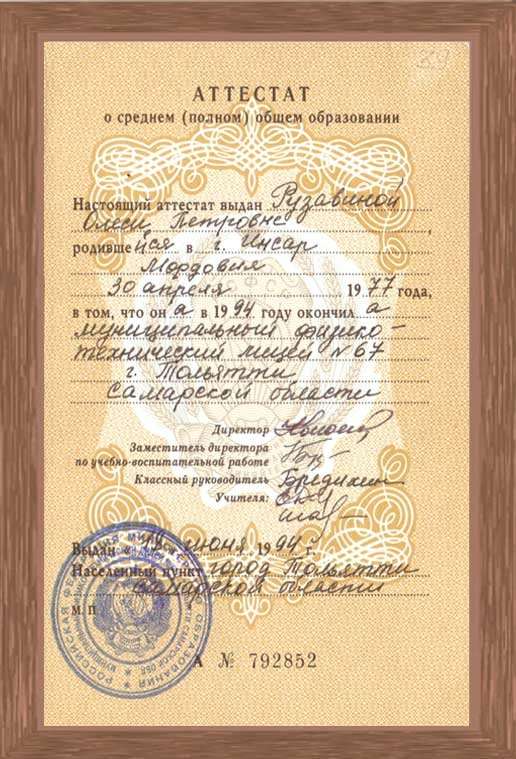 АТТЕСТАТ
о среднем (полном) общем образовании
Настоящий аттестат выдан Рузавиной
Олеси Петровне
родившейся в г. Инсар
Мордовия
30 апреля 1977 года,
в том, что она в 1994 году окончила
муниципальный физико-
технический лицей № 67
г. Тольятти
Самарской области
Директор
Заместитель директора
по учебно-воспитательной работе
Классный руководитель
Учителя:
Выдан « » июня 1994 г.
Населенный пункт город Тольятти
Самарской области
М.П.
А № 792852
РОССИЙСКАЯ ФЕДЕРАЦИЯ ОБРАЗОВАНИЯ